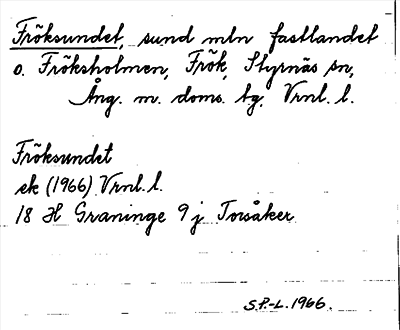 Fröksundet, sund mln fastlandet
o. Fröksholmen, Frök, Styrnäs sn,
Ång. m. doms. tg. Vrnl. l.
Fröksundet
ek (1966) Vrnl. l.
18 H Graninge 9 j Torsåker
S.P.-L. 1966.